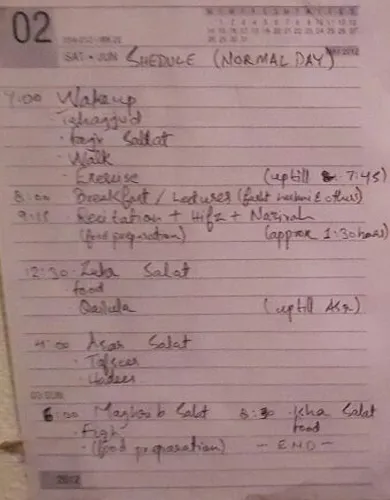 02
SAT • JUN
MAY 2012
SHEDULE (NORMAL DAY)
7:00 Wakeup
· Tahajjud
· Fajr Sallat
· Walk
· Exercise (uptill 7:45)
8:00 Breakfast / Lectures (& others)
9:15 · Recitation + Hifz + Nazirah
(food preparation) (approx 1:30 hours)
12:30 · Zuhr Salat
· food
Qailula (uptill Asr)
4:00 Asar Salat
· Tafseer
· Hadees
03 SUN
6:00 Maghrib Salat 8:30 · Isha Salat
· Fiqh food
· (food preparation) - END -
2012